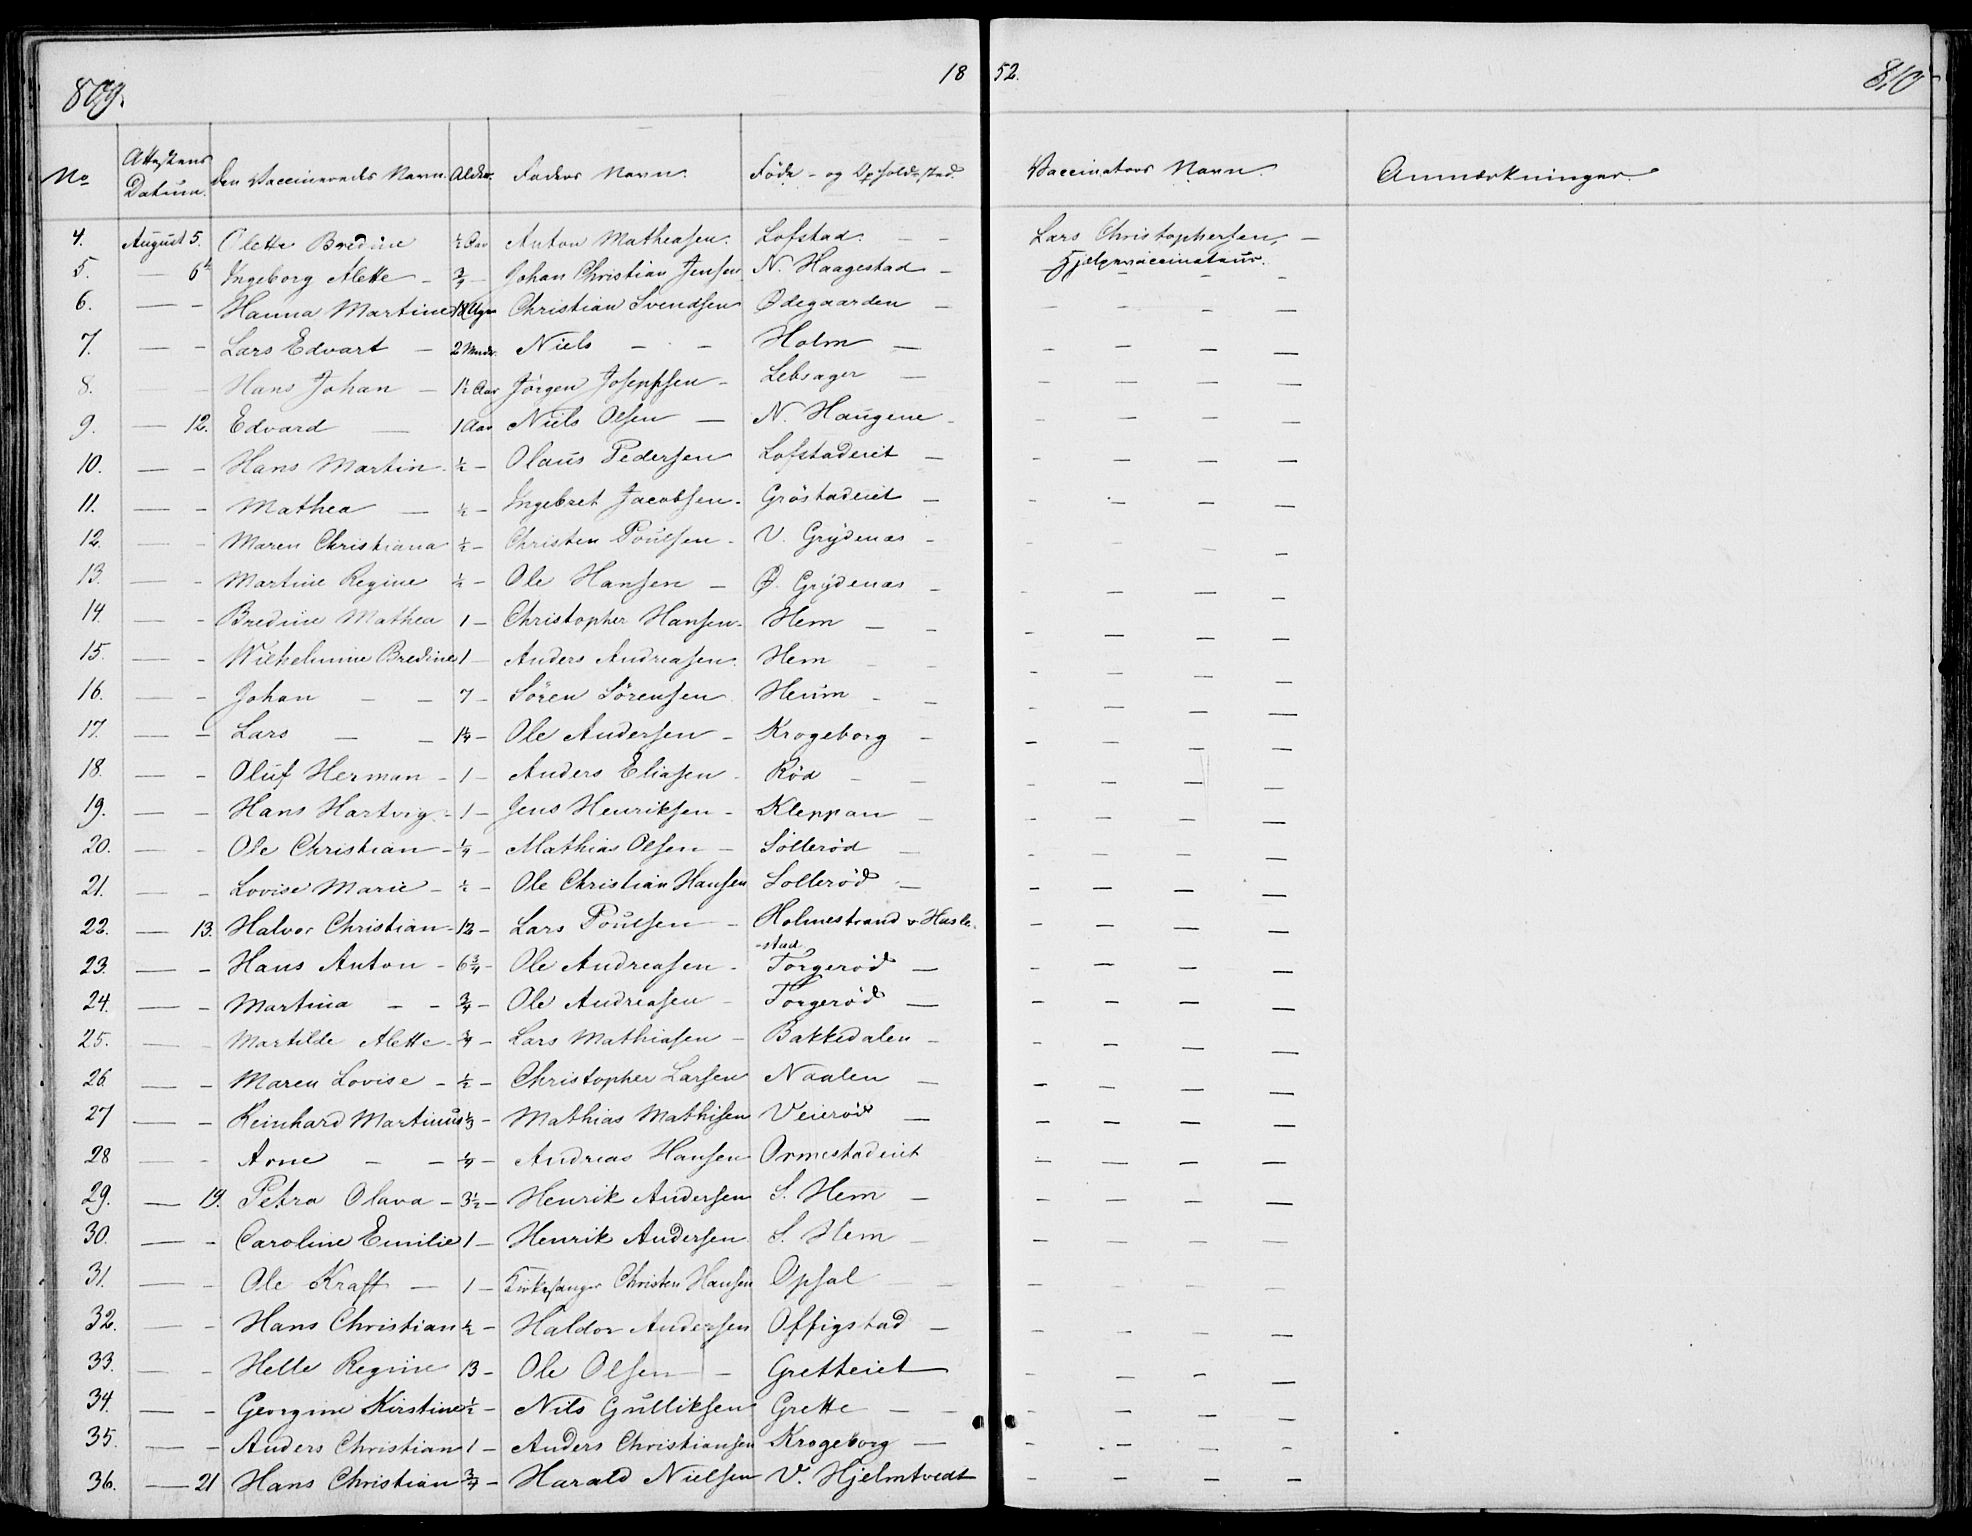 809.
18 52.
810
No
Attestens Datum.
Den Vaccineredes Navn.
Alder.
Faders Navn.
Føde- og Opholdssted.
Vaccinators Navn.
Anmærkninger.
4. August 5. Olette Bredine ½ Aar Anton Matheasen. Lofstad. — — Lars Christophersen, —
Hjelpevaccinateur.
5. — 6te Ingeborg Alette — ¾ — Johan Christian Jensen N. Haagestad — — — — —
6. — — Hanna Martine Uger Christian Svendsen Ødegaarden — — — — —
7. — — Lars Edvart — 2 Mndr. Niels — — Holm — — — — —
8. — Hans Johan — 1½ Aar Jörgen Josephsen — Lebsager — — — — —
9. — 12. Edvard — 1 Aar Niels Olsen — N. Haugene — — — — —
10. — — Hans Martin ½ — Olaus Pedersen Lofstadeiet — — — — —
11. — — Mathea — ½ — Ingebret Jacobsen — Gröstadeiet — — — — —
12. — — Maren Christiana ½ — Christen Poulsen — V. Grydenæs — — — — —
13. — — Martine Regine ½ — Ole Hansen — Ø. Grydenæs — — — — —
14. — — Bredine Mathea 1 — Christopher Hansen — Hem — — — — — —
15. — — Wilhelmine Bredine 1 — Anders Andreasen Hem — — — — — —
16. — — Johan — — 7 — Sören Sörensen Heum — — — — — —
17. — — Lars — — 1¼ — Ole Andersen — Krogeborg — — — — —
18. — — Oluf Herman — 1 — Anders Eliasen — Röd — — — — — —
19. — — Hans Hartvig — 1 — Jens Henriksen — Kleppan — — — — —
20. — — Ole Christian — ¼ — Mathias Olsen — Söllerød — — — — —
21. — — Lovise Marie — ½ — Ole Christian Hansen Sollerød — — — — —
22. — 13. Halvor Christian — 12 — Lars Poulsen — Holmestrand v Hasle- — — — —
-stad
23. — — Hans Anton — 6¾ — Ole Andreasen — Torgerød — — — — —
24. — — Martina — — ¾ — Ole Andreasen — Torgerød — — — — —
25. — — Martilde Alette — ¾ — Lars Mathiasen — Bakkedalen — — — — —
26 — — Maren Lovise — ½ — Christopher Larsen Naalen — — — — —
27 — — Reinhard Martinus ⅓ — Mathias Mathisen Veierød — — — — —
28 — — Arne — — ¼ — Andreas Hansen Ormestadeiet — — — —
29. — 19. Petra Olava — 3½ — Henrik Andersen S. Hem — — — — —
30. — — Caroline Emilie 1 — Henrik Andersen. S. Hem — — — — —
31. — — Ole Kraft — 1 — Kirkesanger Christen Hansen Opsal — — — — — —
32. — — Hans Christian ½ — Haldor Andersen Offigstad — — — — —
33. — — Helle Regine 13 — Ole Olsen — Gretteiet — — — —
34. — — Georgine Kirstine ½ — Nils Gulliksen Grette — — — — — —
35. — — Anders Christian 1 — Anders Christiansen Krogeborg — — — — —
36. — 21 Hans Christian ¾ — Harald Nielsen V. Hjelmtvedt — — — —